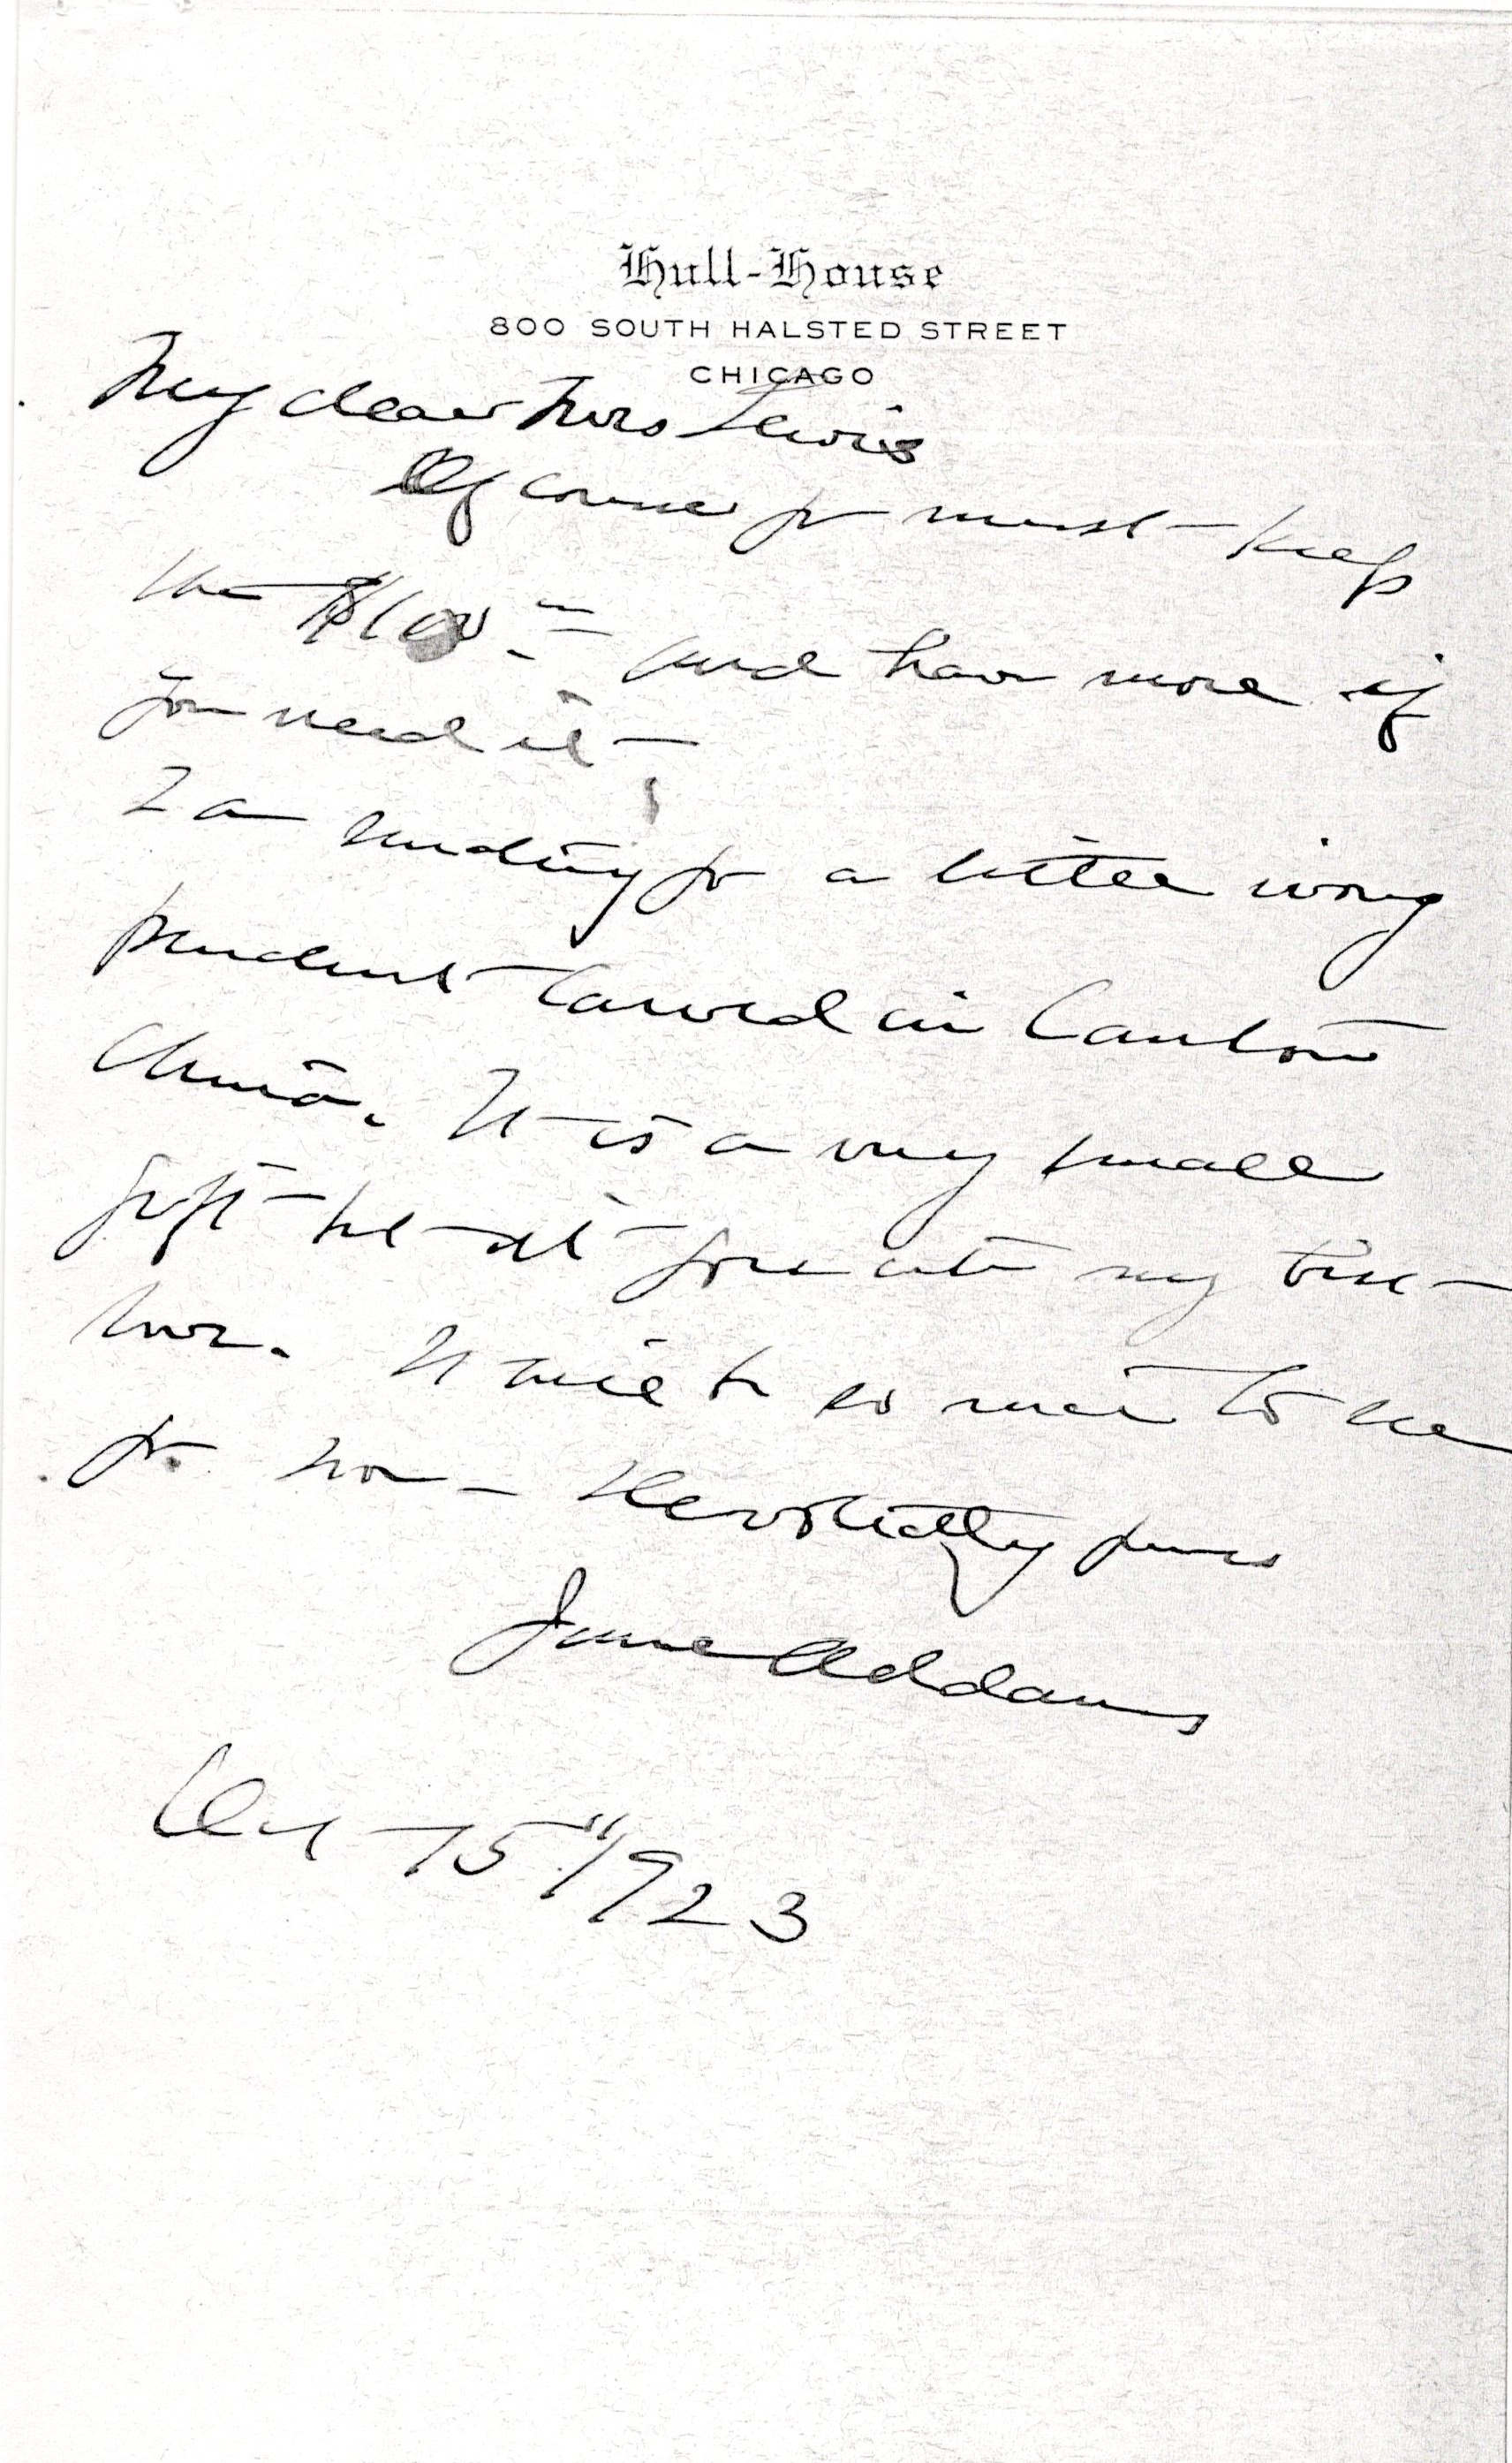 Hull-House
800 SOUTH HALSTED STREET
CHICAGO
My dear Mrs Lewis
Of course yr must keep
the $100.00 and have more if
you need it —
I am sending yr a little ivory
pendant carved in Canton
China. It is a very small
gift but it goes with my
love. It will be so nice to see
yr. now — Devotedly yours
Jane Addams
15" 1923